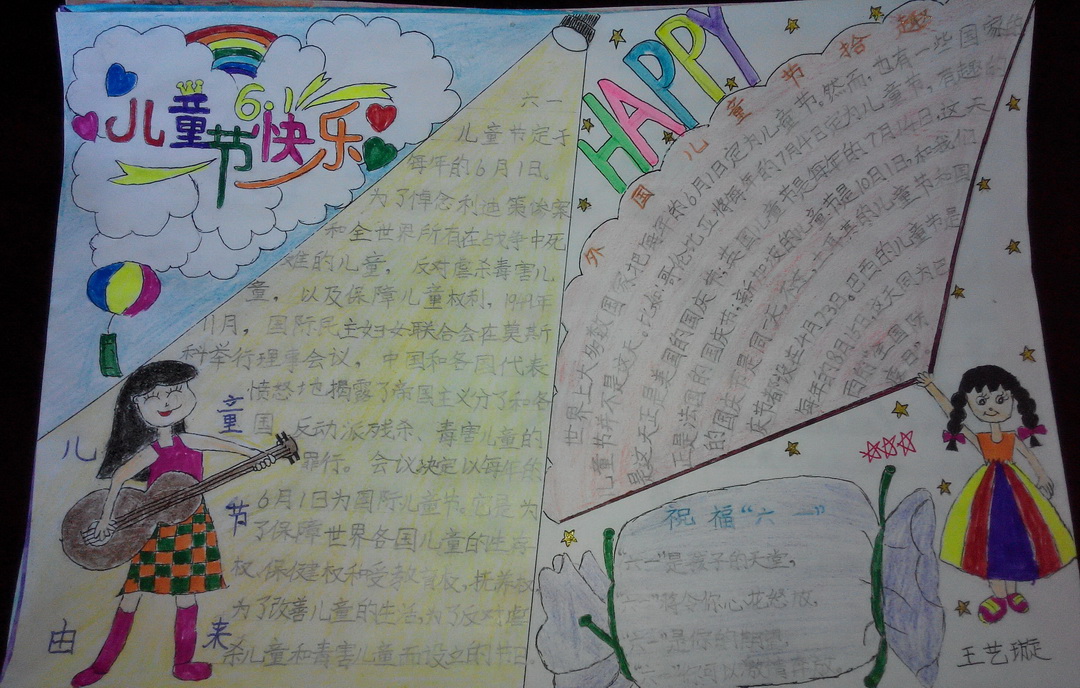 儿童节快乐
6.1
HAPPY
儿童节由来
六一
儿童节定于
每年的6月1日。
为了悼念利迪策惨案
和全世界所有在战争中死
难的儿童，反对虐杀毒害儿
童，以及保障儿童权利，1949年
11月，国际民主妇女联合会在莫斯
科举行理事会议，中国和各国代表
愤怒地揭露了帝国主义分子和各
国反动派残杀、毒害儿童的
罪行。会议决定以每年的
6月1日为国际儿童节。它是为
了保障世界各国儿童的生存
权、保健权和受教育权、抚养权
为了改善儿童的生活，为了反对虐
杀儿童和毒害儿童而设立的节日。
外国儿童节拾趣
世界上大多数国家把每年的6月1日定为儿童节。然而，也有一些国家的
儿童节并不是这天。比如：哥伦比亚将每年的7月4日定为儿童节，有趣的
是这天正是美国的国庆节，英国儿童节是每年的7月14日，这天
正是法国的国庆节，新加坡的儿童节是10月1日，和我们
的国庆节是同一天
庆节都设在4月23日。巴西的儿童节是
每年的8月15日，这天同为巴
西的"全国防
疫日"
祝福"六一"
"六一"是孩子的天堂，
"六一"将令你心花怒放，
"六一"是你的
"六一"你可以
王艺璇